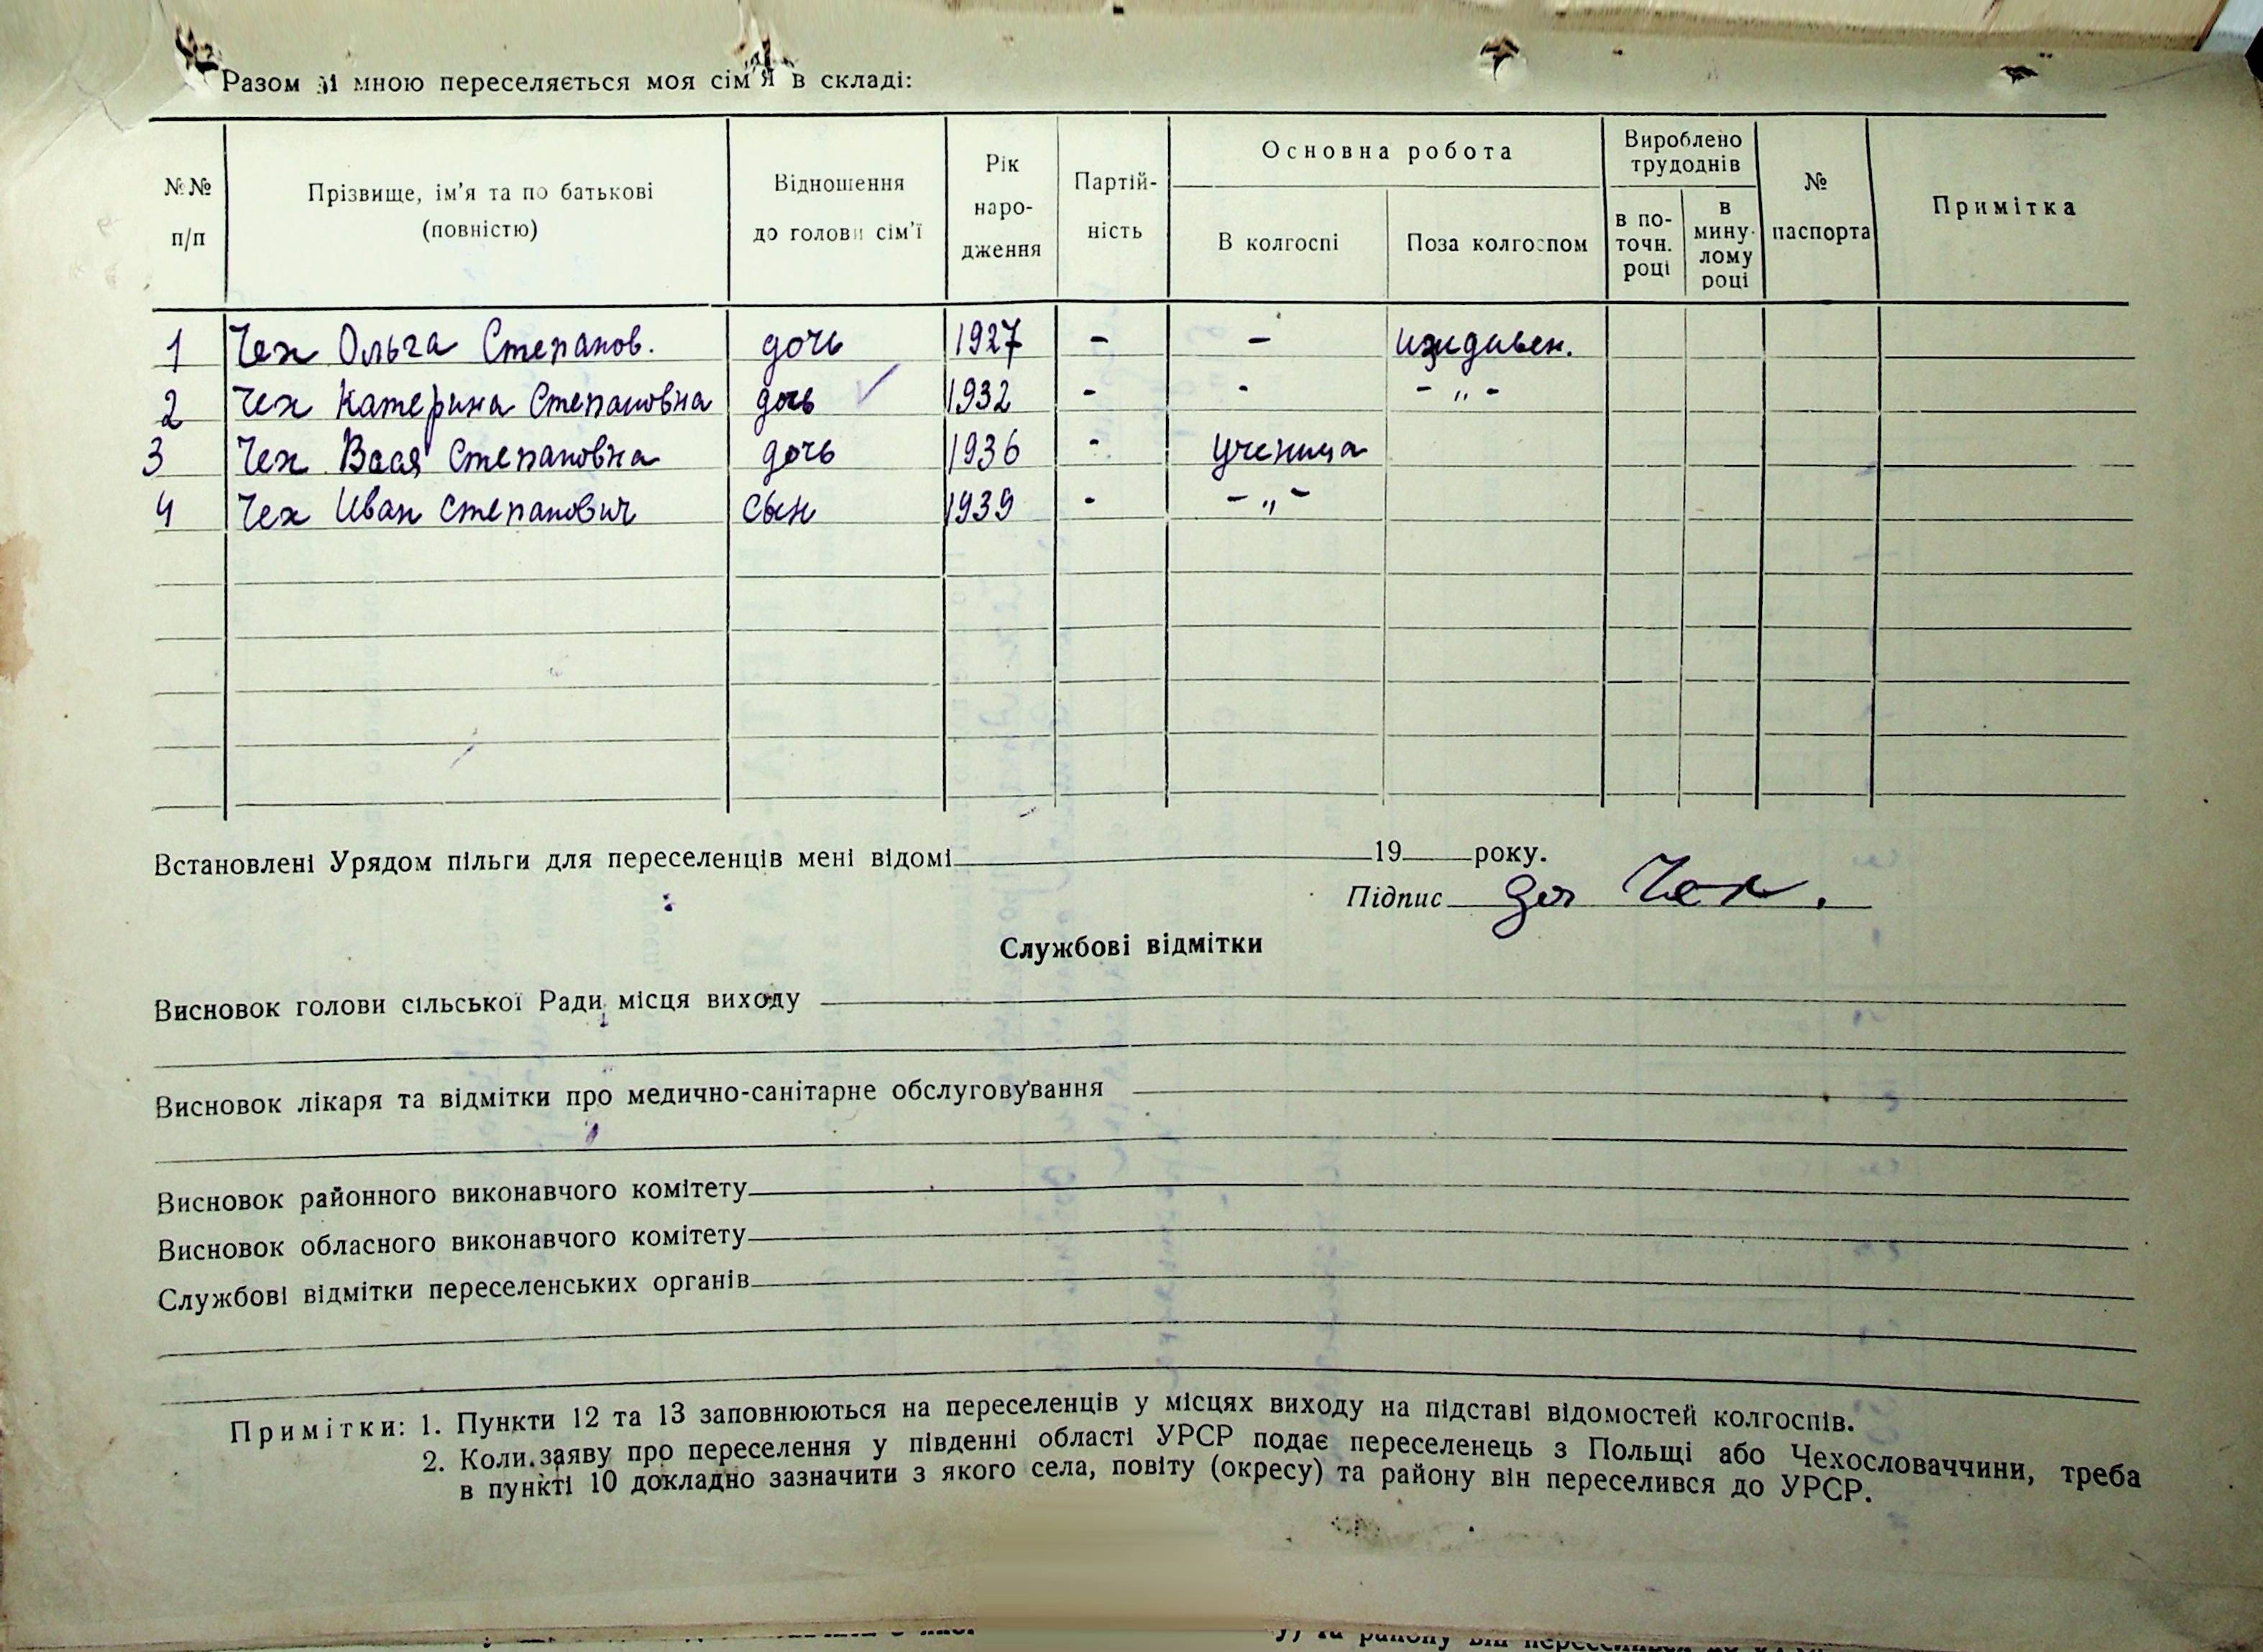 Разом зі мною переселяється моя сім'я в складі:
№№ п/п
Прізвище, ім'я та по батькові (повністю)
Відношення до голови сім'ї
Рік народження
Партійність
Основна робота
В колгоспі
Поза колгоспом
Вироблено трудоднів
в поточн. році
в минулому році
№ паспорта
Примітка
1 Чех Ольга Степанов. дочь 1927 - - иждивен.
2 Чех Катерина Степановна дочь 1932 - - - " -
3 Чех Степановна дочь 1936 - ученица
4 Чех Иван Степанович сын 1939 - - " -
Встановлені Урядом пільги для переселенців мені відомі 19 року.
Підпис Чех.
Службові відмітки
Висновок голови сільської Ради місця виходу
Висновок лікаря та відмітки про медично-санітарне обслуговування
Висновок районного виконавчого комітету
Висновок обласного виконавчого комітету
Службові відмітки переселенських органів
Примітки: 1. Пункти 12 та 13 заповнюються на переселенців у місцях виходу на підставі відомостей колгоспів.
2. Коли заяву про переселення у південні області УРСР подає переселенець з Польщі або Чехословаччини, треба
в пункті 10 докладно зазначити з якого села, повіту (окресу) та району він переселився до УРСР.